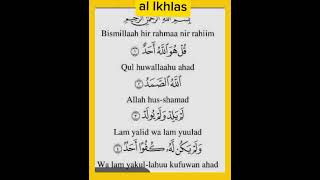 al Ikhlas
بِسْمِ اللهِ الرَّحْمٰنِ الرَّحِيْمِ
Bismillaah hir rahmaa nir rahiim
قُلْ هُوَ اللّٰهُ اَحَدٌ ۝١
Qul huwallaahu ahad
اَللّٰهُ الصَّمَدُ ۝٢
Allah hus-shamad
لَمْ يَلِدْ وَلَمْ يُوْلَدْ ۝٣
Lam yalid wa lam yuulad
وَلَمْ يَكُنْ لَّهٗ كُفُوًا اَحَدٌ ۝٤
Wa lam yakul-lahuu kufuwan ahad